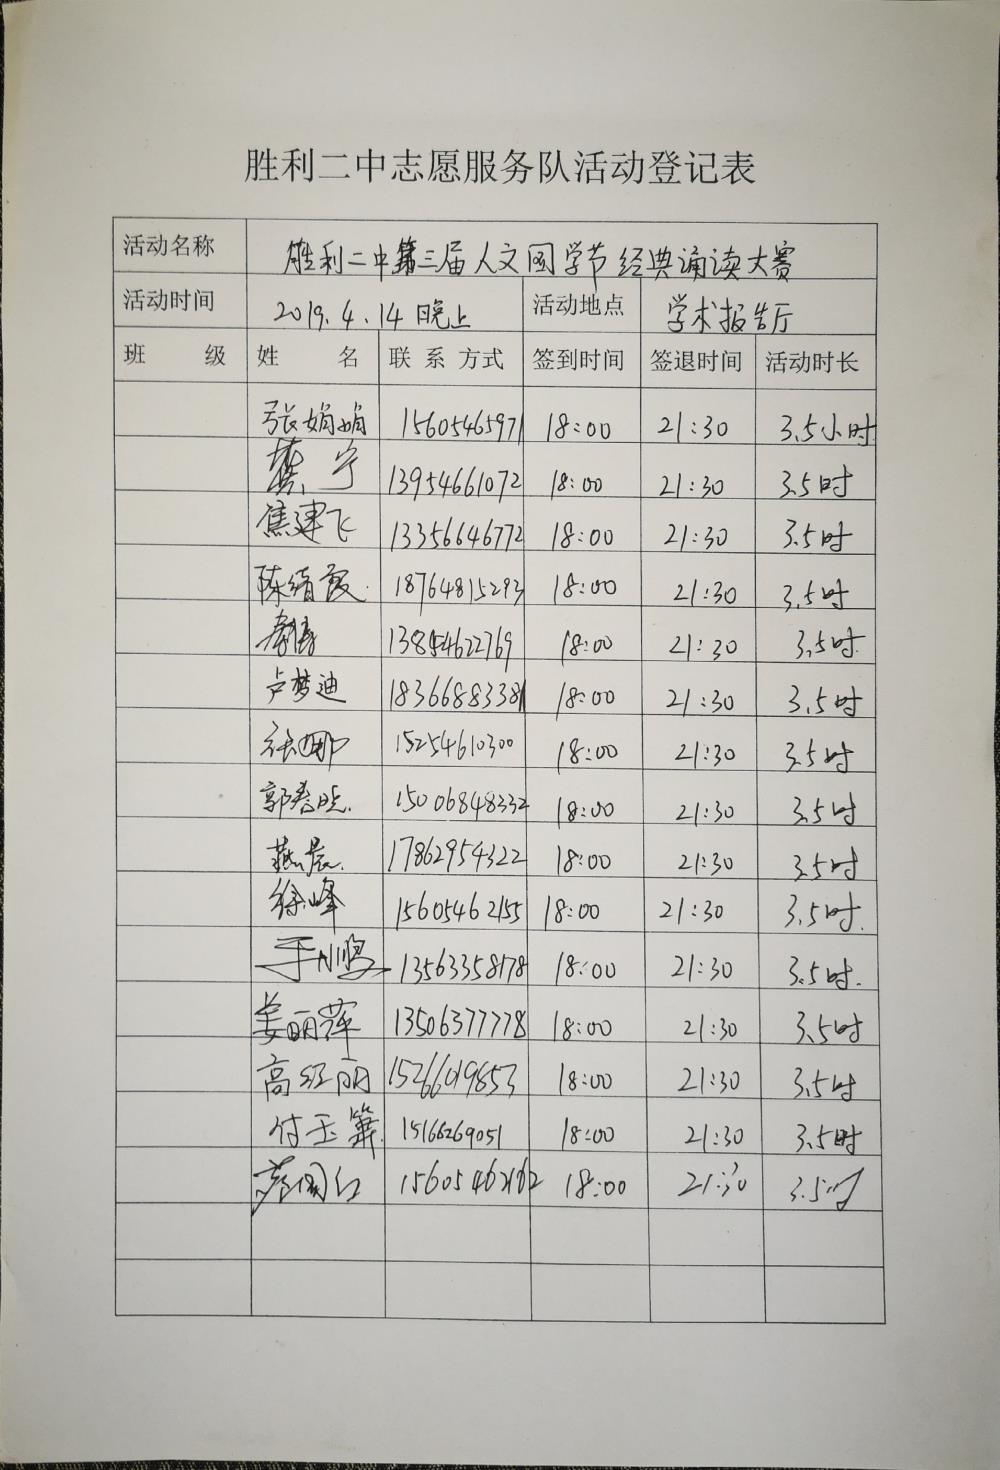 胜利二中志愿服务队活动登记表
活动名称 胜利二中第三届人文国学节经典诵读大赛
活动时间 2019.4.14晚上 活动地点 学术报告厅
班 级 姓 名 联 系 方式 签到时间 签退时间 活动时长
张娟娟 15605465971 18:00 21:30 3.5小时
龚宁 13954661072 18:00 21:30 3.5时
焦建飞 13356646772 18:00 21:30 3.5时
陈绪霞. 18764815293 18:00 21:30 3.5时
13854622769 18:00 21:30 3.5时.
卢梦迪 18366883381 18:00 21:30 3.5时
张娜 15254610300 18:00 21:30 3.5时
郭春晓. 15006848332 18:00 21:30 3.5时
燕晨. 17862954322 18:00 21:30 3.5时
徐峰 15605462155 18:00 21:30 3.5时.
13563358178 18:00 21:30 3.5时.
姜丽萍 13506377778 18:00 21:30 3.5时
高红丽 15266019853 18:00 21:30 3.5时
付玉箫. 15166269051 18:00 21:30 3.5时
15605462162 18:00 21:30 3.5时